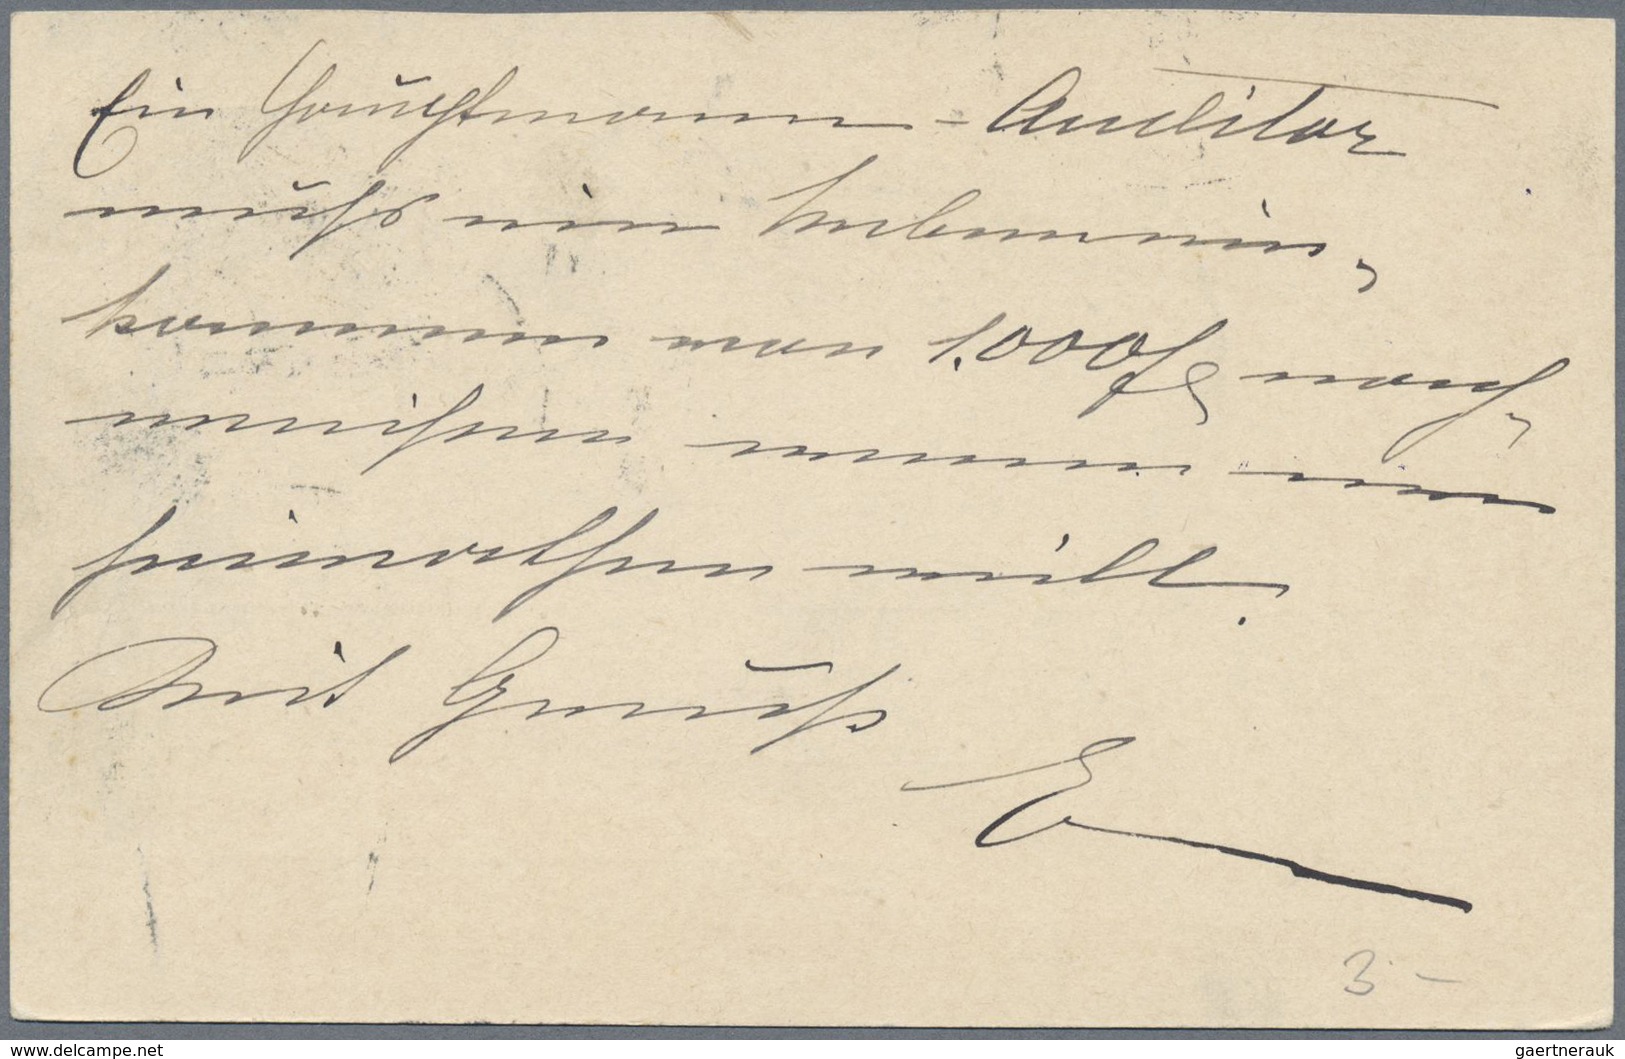 Ein Hauptmann-Auditor
muß ein Nebenein-
kommen von 1.000 fl nach-
weisen wenn er
heirathen will.
Mit Gruß
E
3 -
www.delcampe.net
gaertnerauk